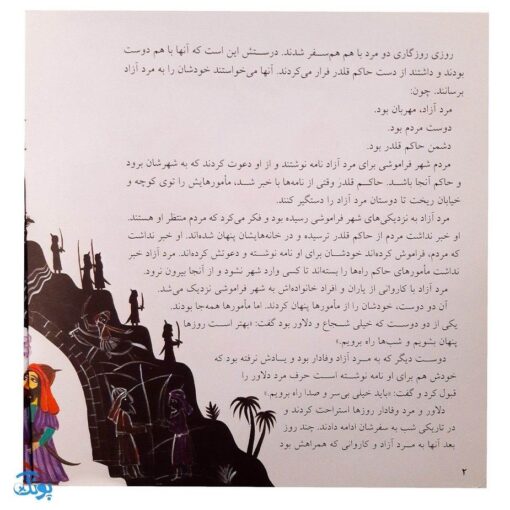 روزی روزگاری دو مرد با هم هم‌سفر شدند. درستش این است که آنها با هم دوست
بودند و داشتند از دست حاکم قلدر فرار می‌کردند. آنها می‌خواستند خودشان را به مرد آزاد
برسانند. چون:
مرد آزاد، مهربان بود.
دوست مردم بود.
دشمن حاکم قلدر بود.
مردم شهر فراموشی برای مرد آزاد نامه نوشتند و از او دعوت کردند که به شهرشان برود
و حاکم آنجا باشد. حاکم قلدر وقتی از نامه‌ها با خبر شد، مأمورهایش را توی کوچه و
خیابان ریخت تا دوستان مرد آزاد را دستگیر کنند.
مرد آزاد به نزدیکی‌های شهر فراموشی رسیده بود و فکر می‌کرد که مردم منتظر او هستند.
او خبر نداشت مردم از حاکم قلدر ترسیده و در خانه‌هایشان پنهان شده‌اند. او خبر نداشت
که مردم، فراموش کرده‌اند خودشان برای او نامه نوشته و دعوتش کرده‌اند. مرد آزاد خبر
نداشت مأمورهای حاکم راه‌ها را بسته‌اند تا کسی وارد شهر نشود و از آنجا بیرون نرود.
مرد آزاد با کاروانی از یاران و افراد خانواده‌اش به شهر فراموشی نزدیک می‌شد.
آن دو دوست، خودشان را از مأمورها پنهان کردند. اما مأمورها همه‌جا بودند.
یکی از دو دوست که خیلی شجاع و دلاور بود گفت: «بهتر است روزها
پنهان بشویم و شب‌ها راه برویم.»
دوست دیگر که به مرد آزاد وفادار بود و یادش نرفته بود که
خودش هم برای او نامه نوشته است حرف مرد دلاور را
قبول کرد و گفت: «باید خیلی بی‌سر و صدا راه برویم.»
دلاور و مرد وفادار روزها استراحت کردند و
در تاریکی شب به سفرشان ادامه دادند. چند روز
بعد آنها به مرد آزاد و کاروانی که همراهش بود
۲
پونک